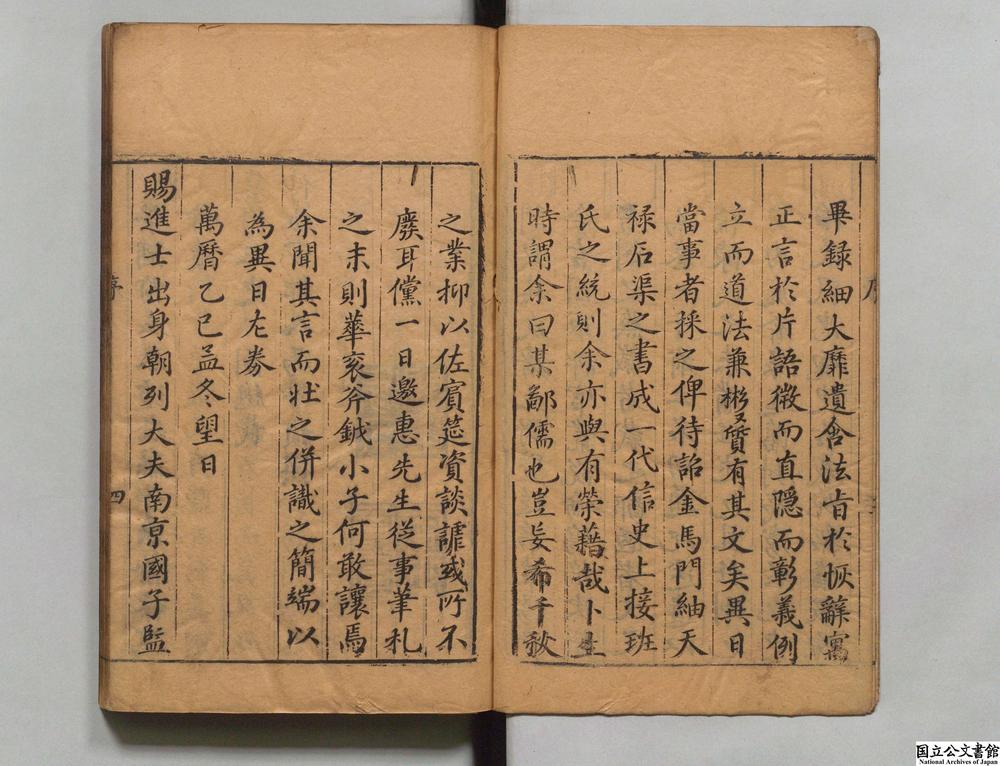 畢録細大靡遺含法旨於恢辭寓
正言於片語微而直隱而彰義例
立而道法兼彬〻質有其文矣異日
當事者採之俾待詔金馬門紬天
禄石渠之書成一代信史上接班
氏之統則余亦與有榮藉哉卜生
時謂余曰某鄙儒也豈妄希千秋
之業抑以佐賓筵資談謔或所不
廢耳儻一日邀惠先生從事筆札
之末則華衮斧鉞小子何敢讓焉
余聞其言而壯之併識之簡端以
為異日左券
萬曆乙巳孟冬望日
賜進士出身朝列大夫南京國子監
序
四
国立公文書館
National Archives of Japan